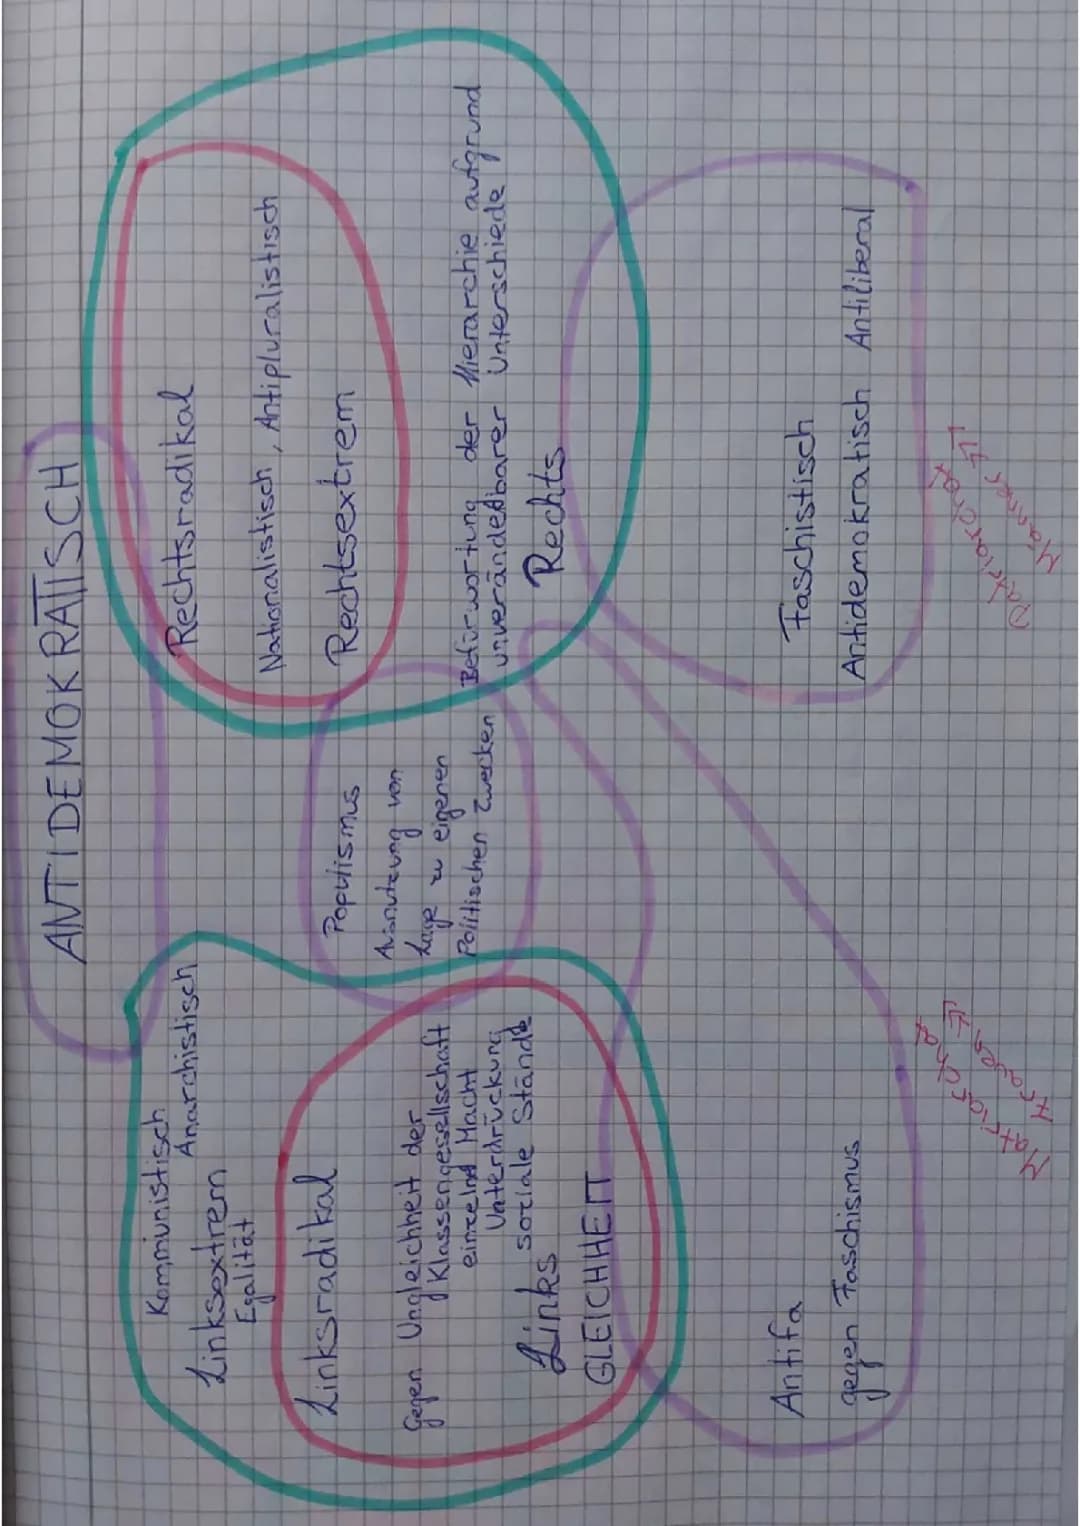 ANTIDEMOKRATISCH
Kommunistisch
Anarchistisch
Linksextrem
Egalität
Linksradikal
Gegen Ungleichheit der
Klassengesellschaft
einzelne Macht
Unterdrückung
soziale Stände
Links
GLEICHHEIT
Populismus
Ausnutzung von
Lage zu eigenen
Politischen Zwecken
Rechtsradikal
Nationalistisch, Antipluralistisch
Rechtsextrem
Befürwortung der Hierarchie aufgrund
unveränderbarer Unterschiede
Rechts
Antifa
gegen Faschismus
Matriarchat
Frauen ⇑
Faschistisch
Antidemokratisch Antiliberal
Patriarchat
Männer ⇑